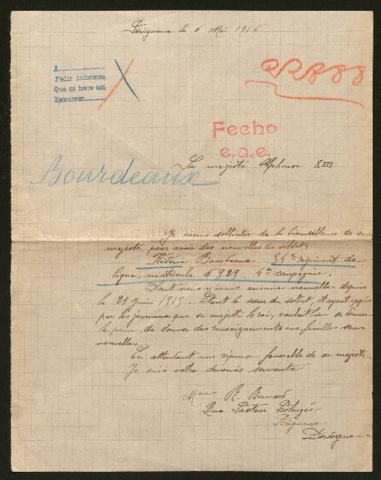 Périgueux le 6 Mai 1916
A
Pedir informes
Que se hace así
Devolver
Fecho
e.a.e.
Sa majesté Alphonse XIII
Bourdeaux
Je viens solliciter de la bienveillance de sa
majesté, pour avoir des nouvelles du soldat
Frédéric Bourdeaux 34e régiment de
ligne, matricule 6929 4e compagnie.
Dont nous n'avons aucunes nouvelles depuis
le 21 juin 1915. Étant la sœur du soldat, et ayant appris
par les journaux que sa majesté le roi, voulait bien se
de donner des renseignements aux familles sans
nouvelles.
En attendant une réponse favorable de sa majesté.
Je suis votre dévouée servante
Mme R. Bernard
Rue Pasteur Prolongée
Périgueux
Dordogne